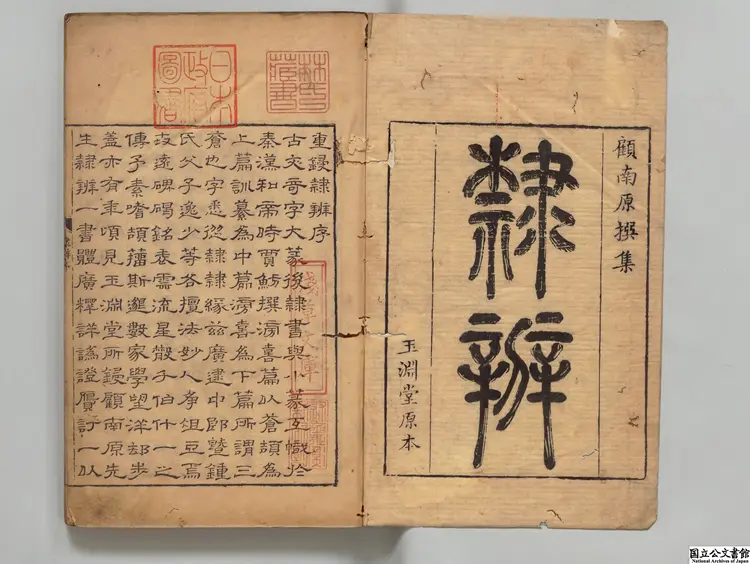 顧南原撰集
隸辨
玉淵堂原本
日本政府圖書
林氏藏書
重鋟隸辨序
古文奇字大篆後隸書與小篆互幟於
秦漢和帝時賈魴撰滂喜篇以蒼頡為
上篇訓纂為中篇滂喜為下篇所謂三
蒼也字悉從隸隸緣茲廣逮中郎暨鍾
氏父子逸少等各擅法妙人夸俎豆焉
攷遠碑碣銘表雲流星散千伯什一之
傳予素嗜頡籒斯邈數家學望洋却步
蓋亦有年頃見玉淵堂所鋟顧南原先
生隸辨一書體廣釋詳譌證贗訂一以
淺草文庫
国立公文書館
National Archives of Japan